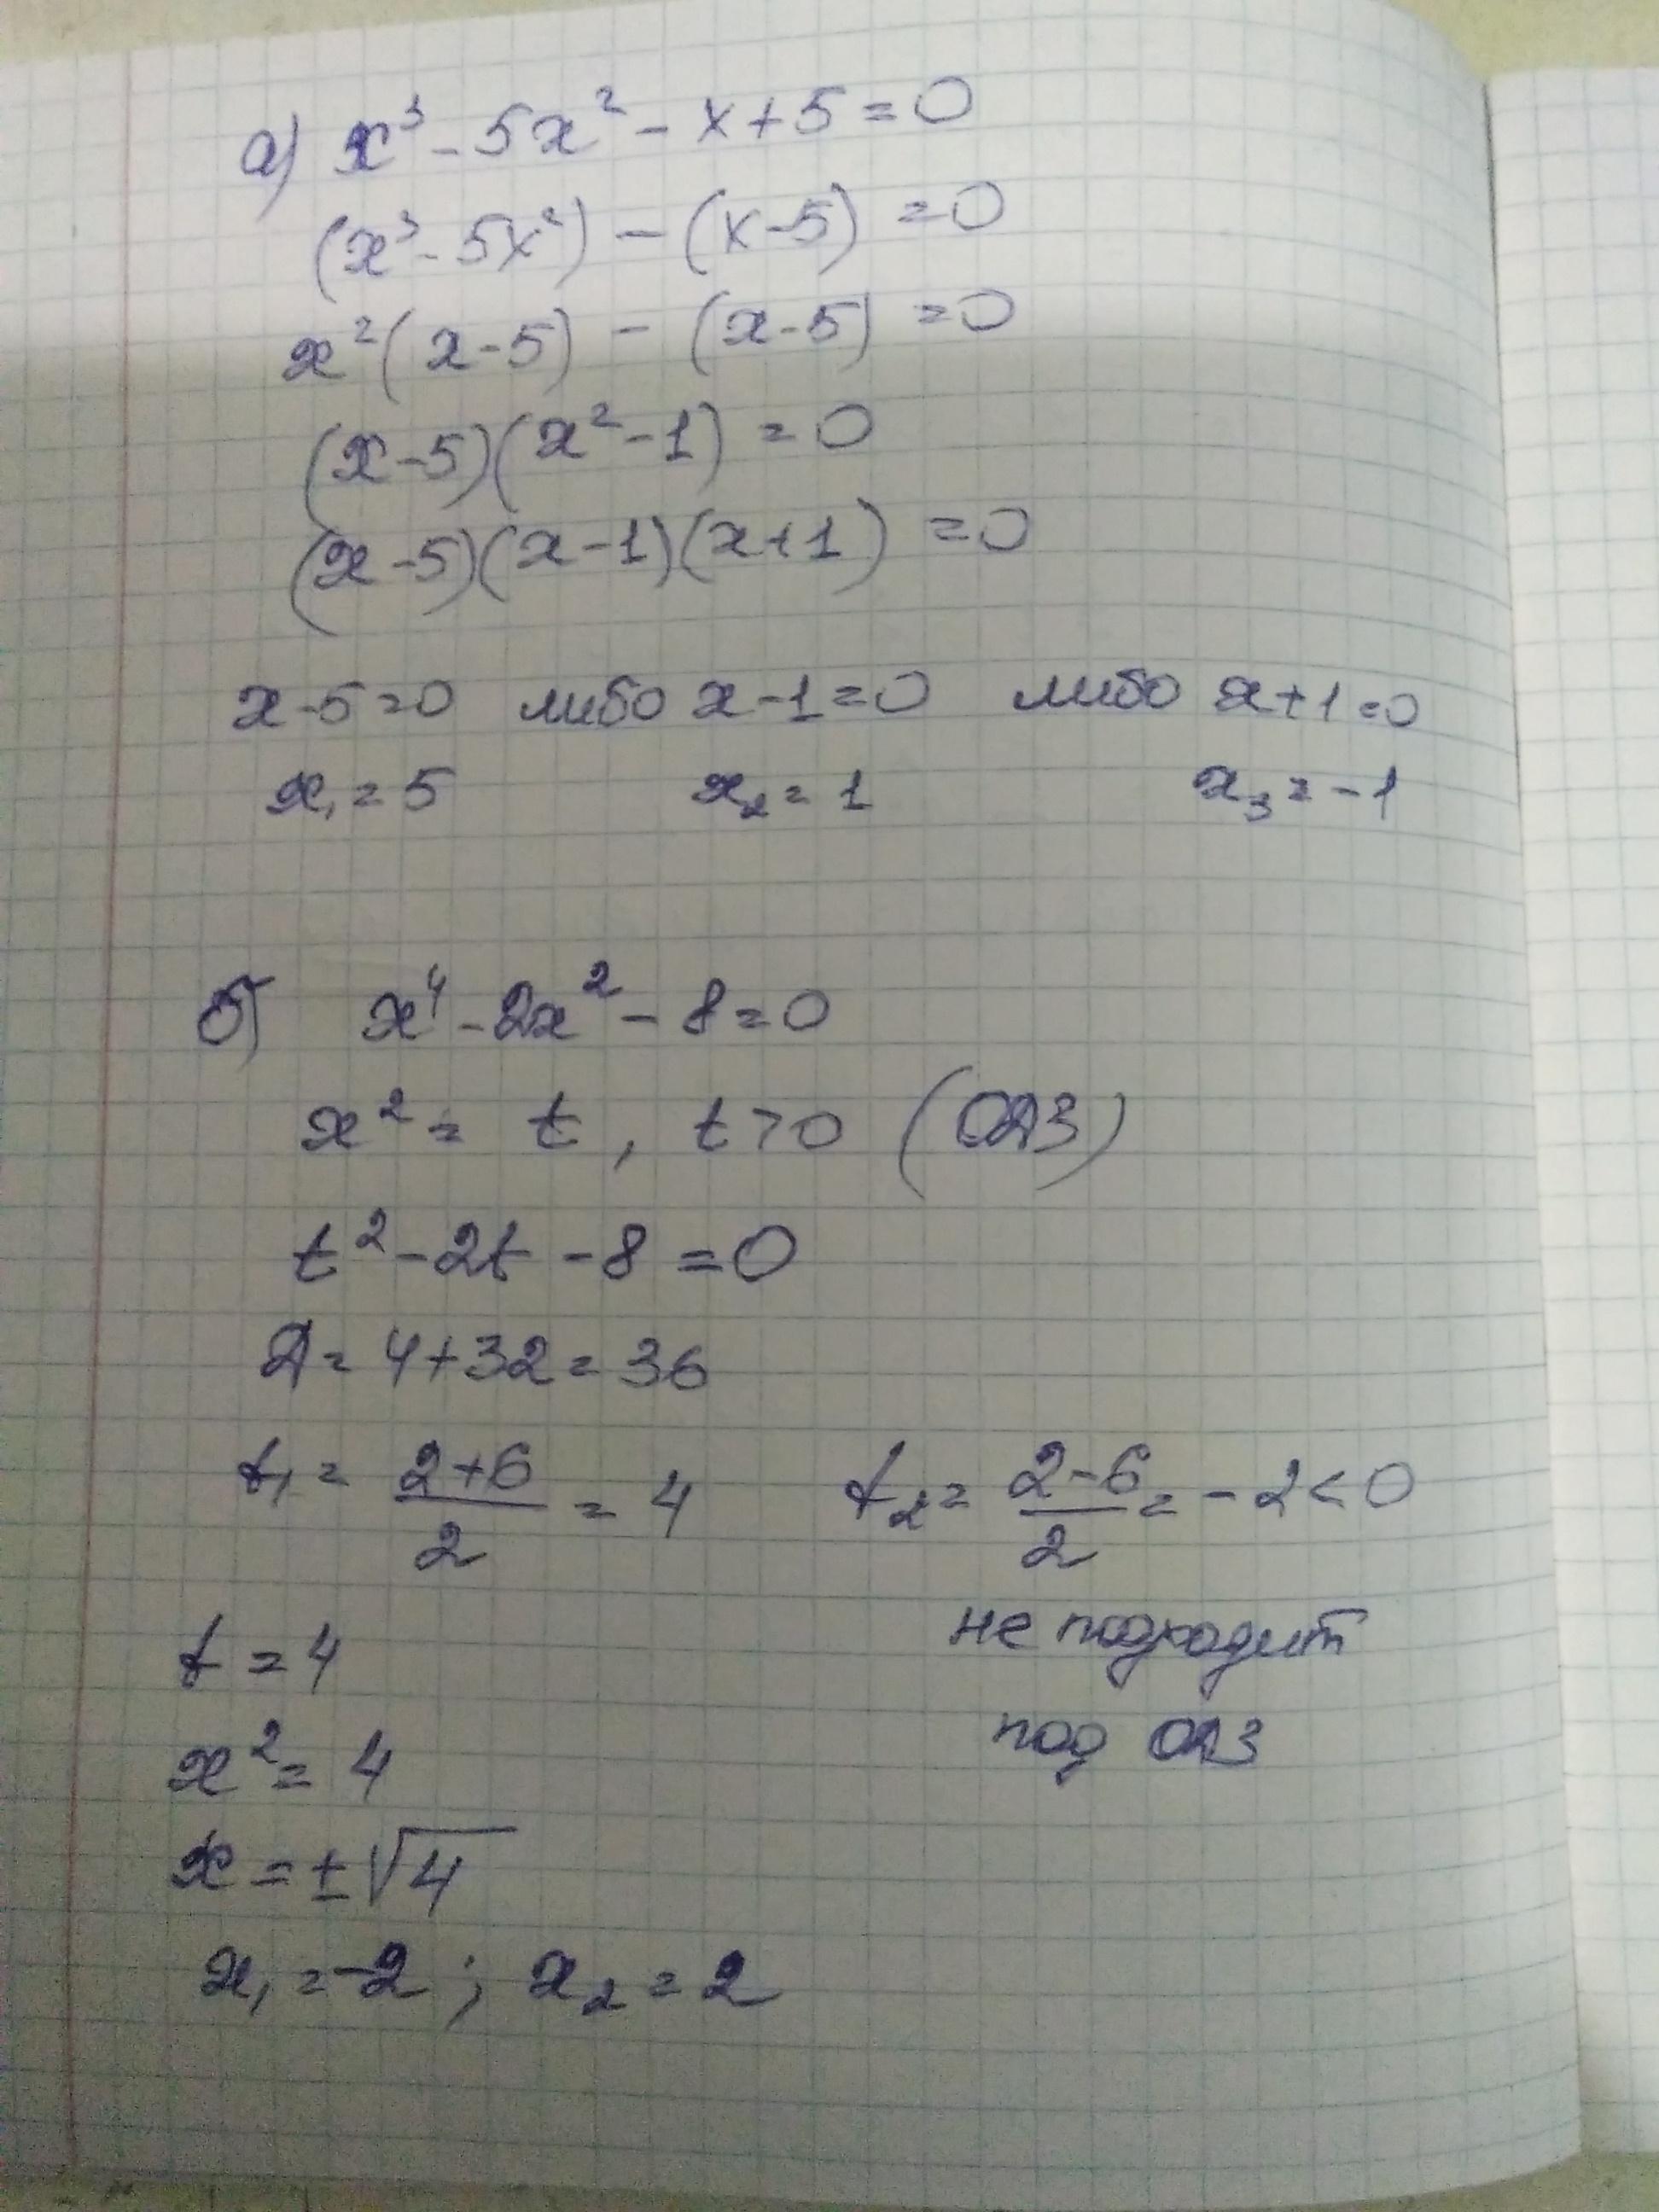 а) x³ - 5x² - x + 5 = 0
(x³ - 5x²) - (x - 5) = 0
x²(x - 5) - (x - 5) = 0
(x - 5)(x² - 1) = 0
(x - 5)(x - 1)(x + 1) = 0
x - 5 = 0 либо x - 1 = 0 либо x + 1 = 0
x₁ = 5 x₂ = 1 x₃ = -1
б) x⁴ - 2x² - 8 = 0
x² = t, t > 0 (ОДЗ)
t² - 2t - 8 = 0
Д = 4 + 32 = 36
t₁ = (2+6)/2 = 4 t₂ = (2-6)/2 = -2 < 0
t = 4 не подходит
x² = 4 под ОДЗ
x = ±√4
x₁ = -2; x₂ = 2